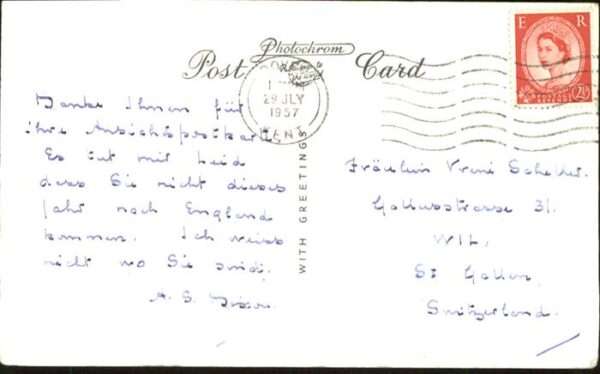 Photochrom
Post Card
E R
29 JLY
1957
KENT
2½
WITH GREETINGS
Danke Ihnen für
Ihre Ansichtspostkarte.
Es tut mir Leid
dass Sie nicht dieses
Jahr nach England
kommen. Ich weiss
nicht wo Sie sind.
A. S.
Fräulein Vreni
Gallusstrasse 31.
WIL,
St Gallen,
Switzerland.